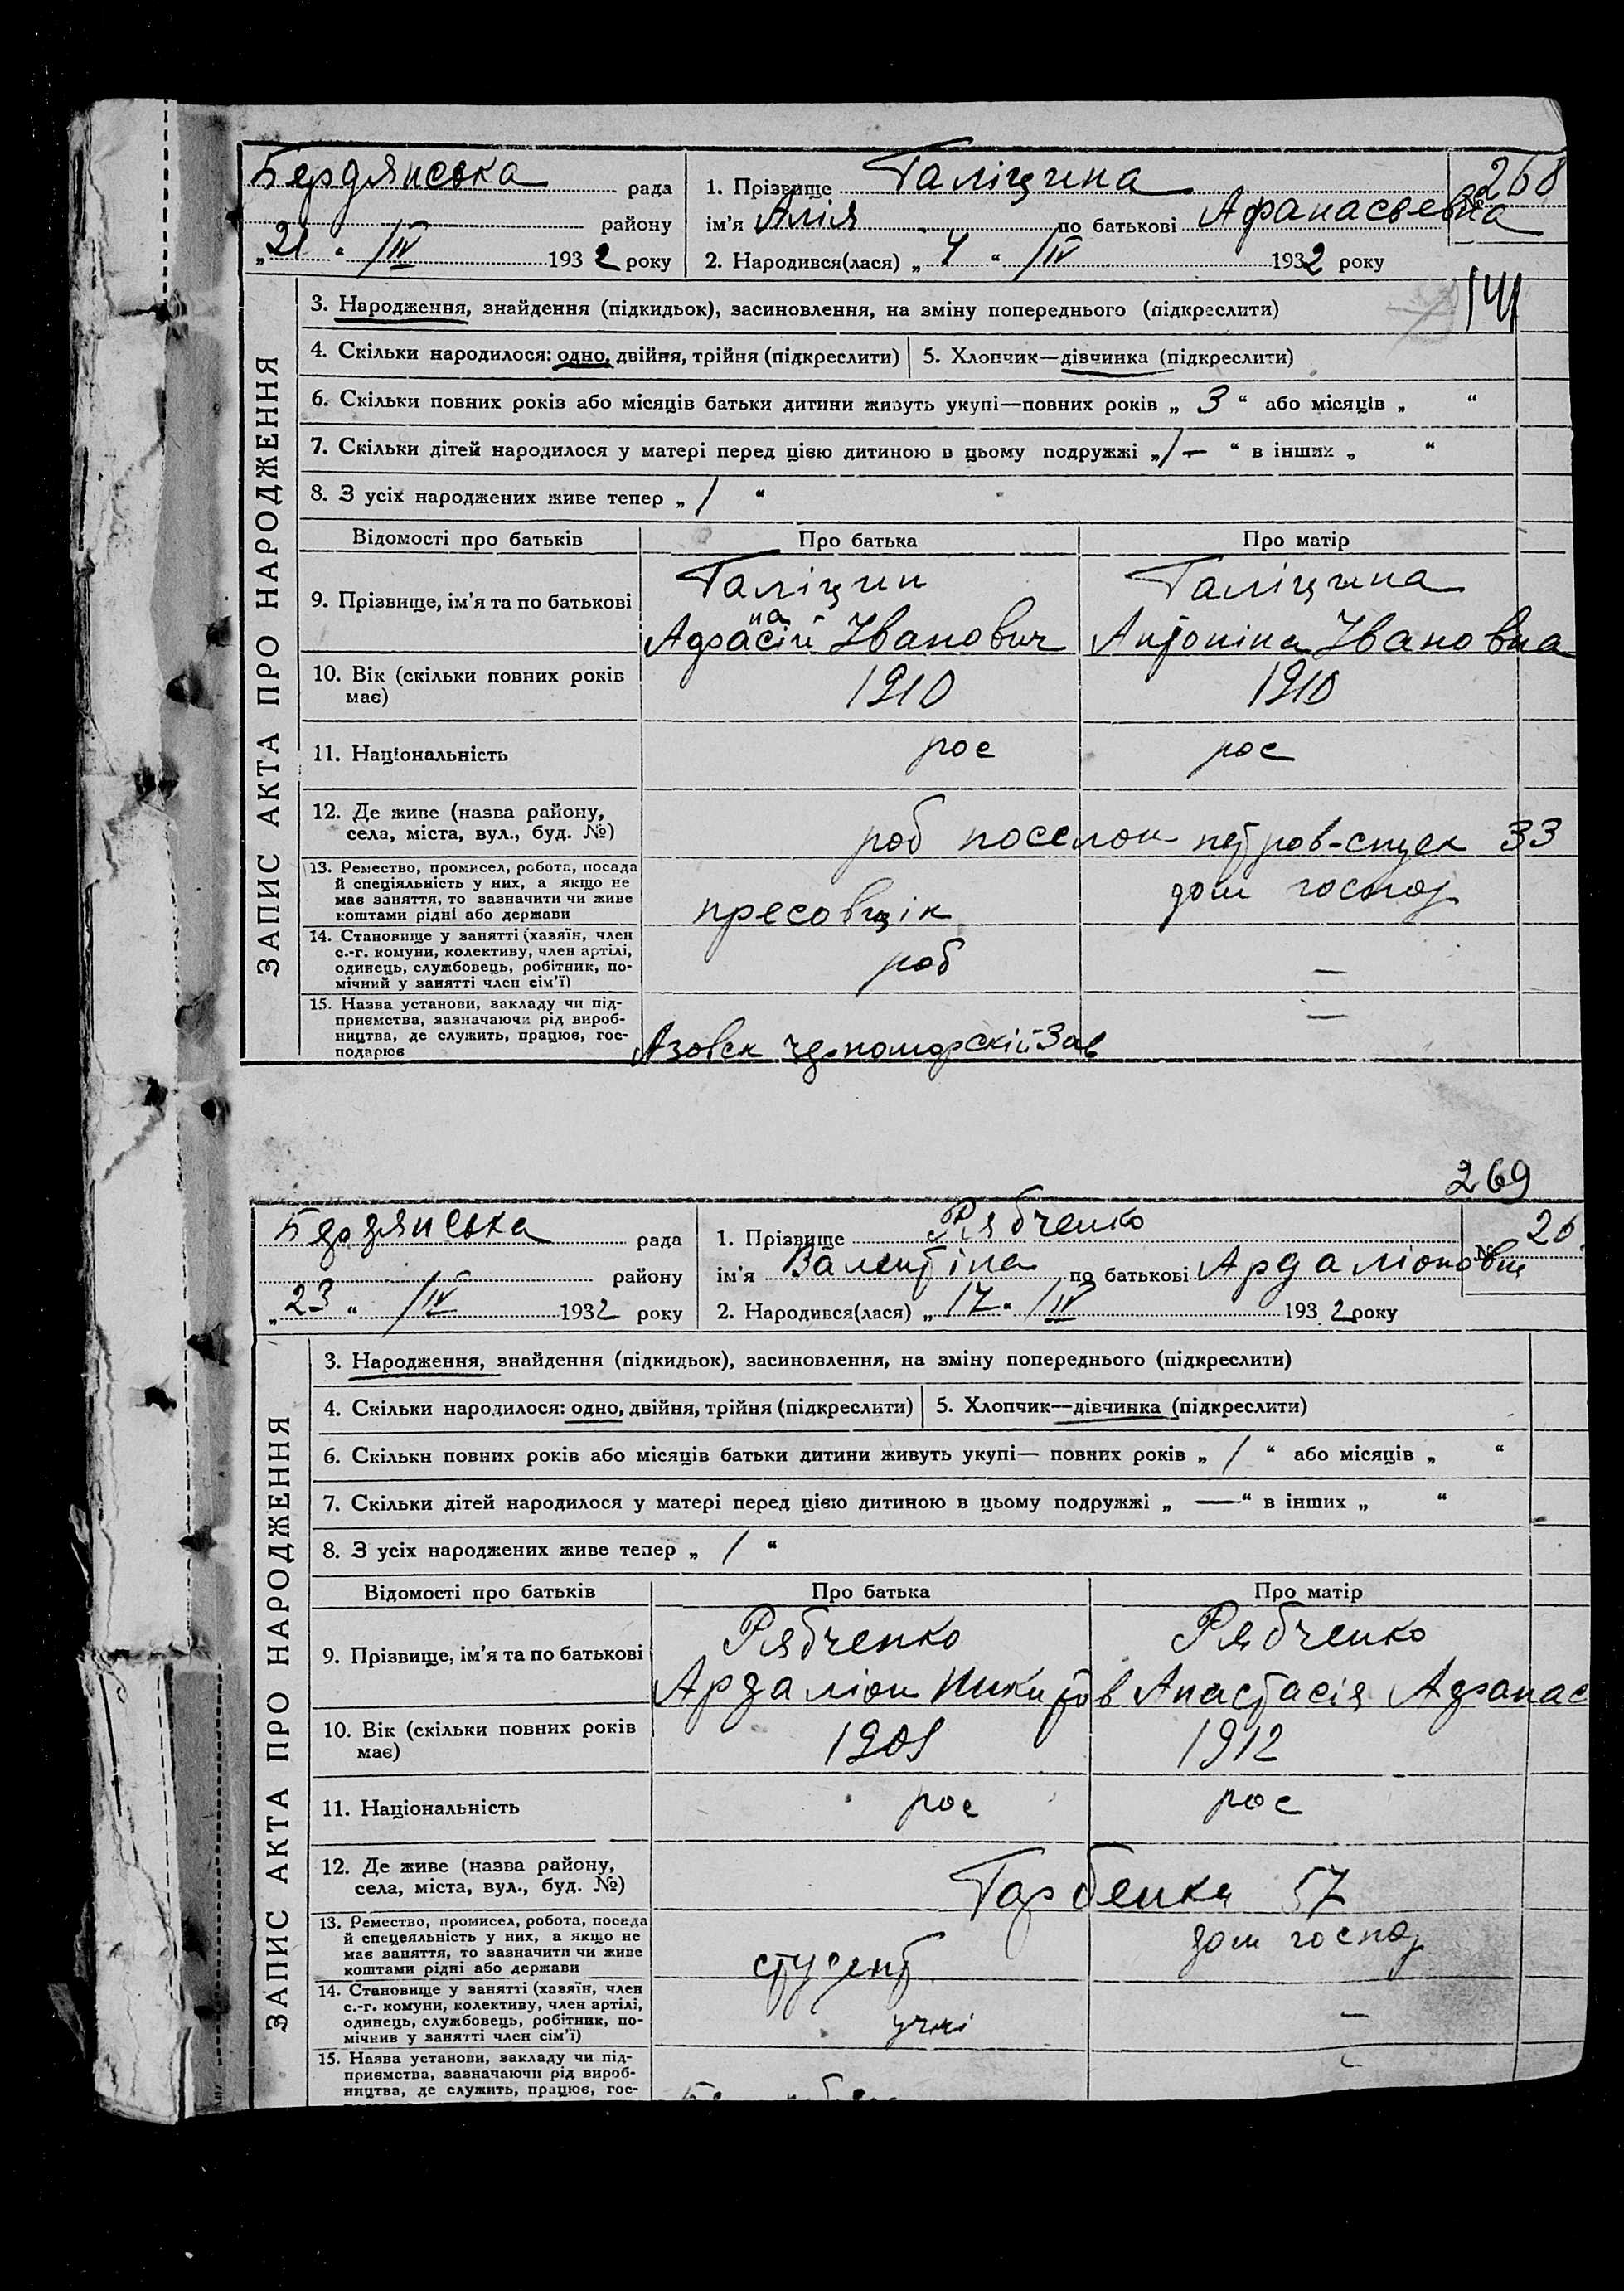 Бердянська рада
району
„21“ /IV 1932 року
1. Прізвище Галіцина
ім’я Алія по батькові Афанасьевна
2. Народився(лася) „4“ /IV 1932 року
№ 268
141
ЗАПИС АКТА ПРО НАРОДЖЕННЯ
3. Народження, знайдення (підкидьок), засиновлення, на зміну попереднього (підкреслити)
4. Скільки народилося: одно, двійня, трійня (підкреслити) 5. Хлопчик—дівчинка (підкреслити)
6. Скільки повних років або місяців батьки дитини живуть укупі—повних років „ 3 “ або місяців „ “
7. Скільки дітей народилося у матері перед цією дитиною в цьому подружжі „ /— “ в інших „ “
8. З усіх народжених живе тепер „ / “
Відомості про батьків Про батька Про матір
9. Прізвище, ім’я та по батькові
Галіцин Галіцина
Афанасій Іванович Антоніна Івановна
10. Вік (скільки повних років має) 1910 1910
11. Національність рос рос
12. Де живе (назва району,
села, міста, вул., буд. №)
роб поселок 33
13. Ремество, промисел, робота, посада
й спеціяльність у них, а якщо не
має заняття, то зазначити чи живе
коштами рідні або держави
пресовщік дом господ
14. Становище у занятті (хазяїн, член
с.-г. комуни, колективу, член артілі,
одинець, службовець, робітник, по-
мічний у занятті член сім’ї)
роб —
15. Назва установи, закладу чи під-
приємства, зазначаючи рід вироб-
ництва, де служить, працює, гос-
подарює
Азовск черноморскій Зав —
269
Бердянська рада
району
„23“ /IV 1932 року
1. Прізвище Рябченко
ім’я Валентіна по батькові Ардаліоновна
2. Народився(лася) „17“ /IV 1932 року
№ 26
ЗАПИС АКТА ПРО НАРОДЖЕННЯ
3. Народження, знайдення (підкидьок), засиновлення, на зміну попереднього (підкреслити)
4. Скільки народилося: одно, двійня, трійня (підкреслити) 5. Хлопчик—дівчинка (підкреслити)
6. Скількн повних років або місяців батьки дитини живуть укупі— повних років „ / “ або місяців „ “
7. Скільки дітей народилося у матері перед цією дитиною в цьому подружжі „ — “ в інших „ “
8. З усіх народжених живе тепер „ / “
Відомості про батьків Про батька Про матір
9. Прізвище, ім’я та по батькові
Рябченко Рябченко
Ардаліон Никитов Анастасія Афанас
10. Вік (скільки повних років має) 1909 1912
11. Національність рос рос
12. Де живе (назва району,
села, міста, вул., буд. №)
57
13. Ремество, промисел, робота, посада
й спецеяльність у них, а якщо не
має заняття, то зазначити чи живе
коштами рідні або держави
студент дом господ
14. Становище у занятті (хазяїн, член
с.-г. комуни, колективу, член артілі,
одинець, службовець, робітник, по-
мічнив у занятті член сім’ї)
учні —
15. Назва установи, закладу чи під-
приємства, зазначаючи рід вироб-
ництва, де служить, працює, гос-